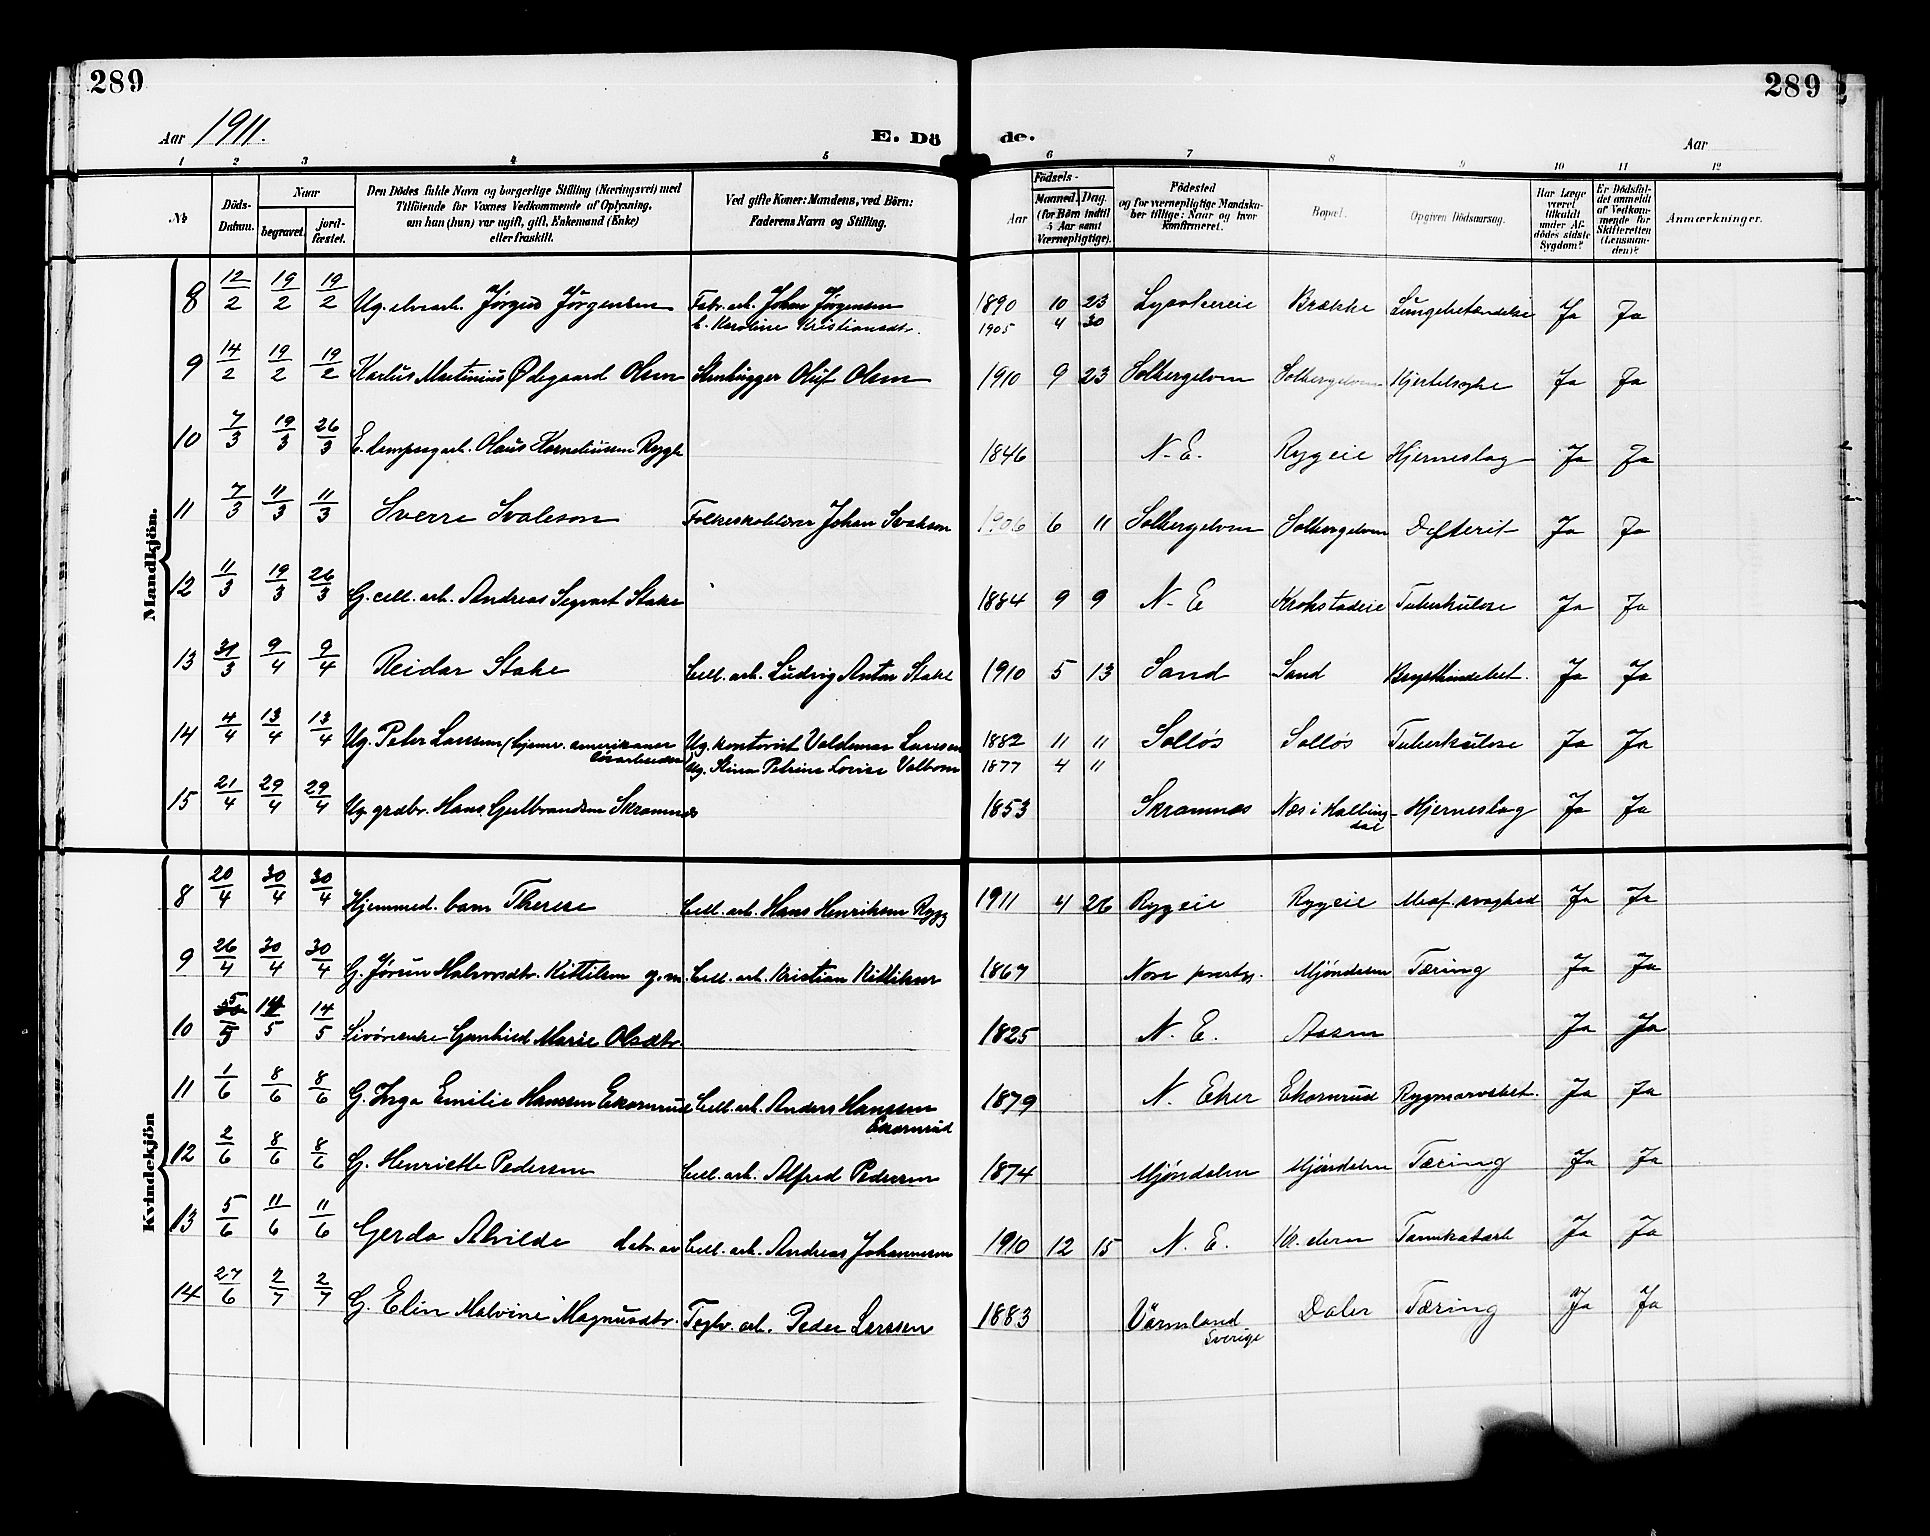 289
289
Aar 1911.
E. Dö
de.
Aar
1 2 3 4 5 6 7 8 9 10 11 12
№
Döds-Datum.
Naar
begravet.
jord-fæstet.
Den Dödes fulde Navn og borgerlige Stilling (Næringsvei) med
Tilföiende for Voxnes Vedkommende af Oplysning,
om han (hun) var ugift, gift, Enkemand (Enke)
eller fraskilt.
Ved gifte Koner: Mandens, ved Börn:
Faderens Navn og Stilling.
Födsels-
Aar
Maaned. Dag.
(for Börn indtil
5 Aar samt
Værnepligtige).
Födested
og for værnepligtige Mandska-
ber tillige: Naar og hvor
konfirmeret.
Bopæl.
Opgiven Dödsaarsag.
Har Læge
været
tilkaldt
under Af-
dödes sidste
Sygdom?
Er Dödsfal-
det anmeldt
af Vedkom-
mende for
Skifteretten
(Lensman-
den)?
Anmærkninger.
Mandkjön.
8 12/2 19/2 19/2 Ug. elvearb. Jørgen Jørgensen Fabr. arb. Johan Jørgensen 1890 10 23 Brække Lungebetændelse Ja Ja
Karoline Kristiansdtr. 1905 4 30
9 14/2 19/2 19/2 Karlus Martinius Ødegaard Olsen Stenhugger Oluf Olsen 1910 9 23 Solbergelven Solbergelven Kjertelsyke Ja Ja
10 7/3 19/3 26/3 Olaus Korneliussen Rygh 1846 N. E. Rygeie Hjerneslag Ja Ja
11 7/3 11/3 11/3 Sverre Svaleson Folkeskolelærer Johan Svaleson 1906 6 11 Solbergelven Solbergelven Difterit Ja Ja
12 11/3 19/3 26/3 G. cell. arb. Andreas Segvart Stake 1884 9 9 N. E Krokstadeie Tuberkulose Ja Ja
13 31/3 9/4 9/4 Reidar Stake Cell. arb. Ludvig Anton Stake 1910 5 13 Sand Sand Ja Ja
14 4/4 13/4 13/4 Ug. Peter Larssen (hjemv. amerikaner Ug. kontorist Valdemar Larssen 1882 11 11 Solløs Solløs Tuberkulose Ja Ja
løsarbeider Ug. Stina Petrine Lovise Valbom 1877 4 11
15 21/4 29/4 29/4 Ug. grdbr. Hans Gulbrandsen Skramnes 1853 Skramnæs Næs i Halling- Hjerneslag Ja Ja
dal
Kvindekjön
8 20/4 30/4 30/4 Hjemmed. barn Therese Cell. arb. Hans Henriksen Rygg 1911 4 26 Rygeie Rygeie Medf. svaghed Ja Ja
9 26/4 30/4 30/4 G. Jørun Halvorsdtr. Kittilsen g. m. Cell. arb. Kristian Kittilsen 1867 Nore præstgj. Mjøndalen Tæring Ja Ja
10 5/5 14/5 14/5 Gunhild Marie Olsdtr. 1825 N. E. Aasen Ja Ja
11 1/6 8/6 8/6 G. Inga Emilie Hanssen Ekornrud Cell. arb. Anders Hanssen 1879 N. Eker Ekornrud Rygmarvsbet. Ja Ja
Ekornrud
12 2/6 8/6 8/6 G. Henriette Pedersen Cell. arb. Alfred Pedersen 1874 Mjøndalen Mjøndalen Tæring Ja Ja
13 5/6 11/6 11/6 Gerda Alvilde datr. av Cell. arb. Andreas Johannesen 1910 12 15 N. E. Kr. elven Tarmkatarh Ja Ja
14 27/6 2/7 2/7 G. Elin Malvine Magnusdtr. Teglv. arb. Peder Larssen 1883 Värmland Daler Tæring Ja Ja
Sverige